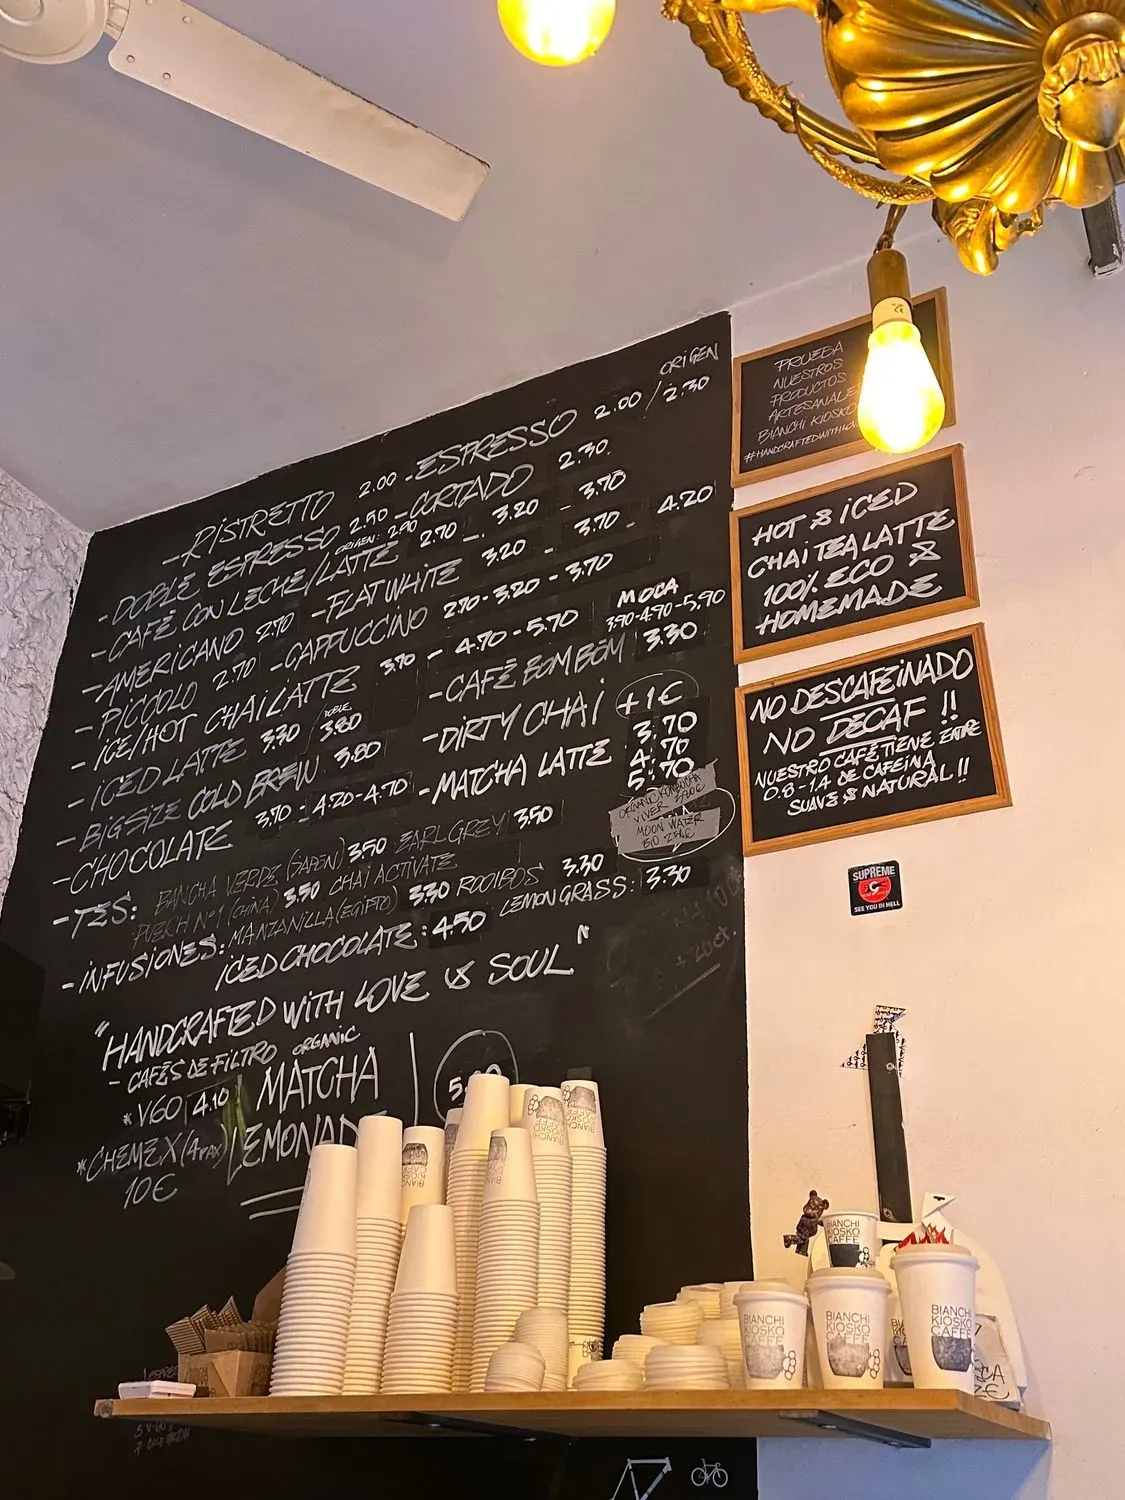 ORIGEN
- RISTRETTO 2.00 - ESPRESSO 2.00 / 2.30
- DOBLE ESPRESSO 2.50 - CORTADO 2.30
ORIGEN: 2.90
- CAFÉ CON LECHE/LATTE 2.70 - 3.20 - 3.70
- AMERICANO 2.70 - FLAT WHITE 3.20 - 3.70 - 4.20
- PICCOLO 2.70 - CAPPUCCINO 2.70 - 3.20 - 3.70
- ICE/HOT CHAI LATTE 3.70 - 4.70 - 5.70
MOCA
3.90-4.90-5.90
- ICED LATTE 3.30 / 3.80
DOBLE
- CAFÉ BOMBÓM 3.30
- BIGSIZE COLD BREW 3.80
- DIRTY CHAI +1€
- CHOCOLATE 3.70 - 4.20 - 4.70
- MATCHA LATTE 3.70
4.70
5.70
VIVER
MOON WATER
BIO
- TÉS: BANCHA VERDE (JAPÓN) 3.50 EARL GREY 3.50
PUERH Nº1 (CHINA) 3.50 CHAI ACTIVATE
- INFUSIONES: MANZANILLA (EGIPTO) 3.30 ROOIBOS 3.30
LEMONGRASS: 3.30
ICED CHOCOLATE: 4.50
"HANDCRAFTED WITH LOVE & SOUL"
- CAFÉS DE FILTRO
* V60 4.10
* CHEMEX (4PAX)
10€
ORGANIC
MATCHA
LEMONAD
PRUEBA
NUESTROS
PRODUCTOS
ARTESANALES
BIANCHI KIOSKO
HOT & ICED
CHAI TEA LATTE
100% ECO &
HOMEMADE
NO DESCAFEINADO
NO DECAF !!
NUESTRO CAFÉ TIENE ENTRE
0.8 - 1.4 DE CAFEINA
SUAVE & NATURAL!!
SUPREME
SEE YOU IN HELL
BIANCHI
KIOSKO
CAFFE
BIANCHI
KIOSKO
CAFFE
BIANCHI
KIOSKO
CAFFE
BIANCHI
KIOSKO
CAFFE